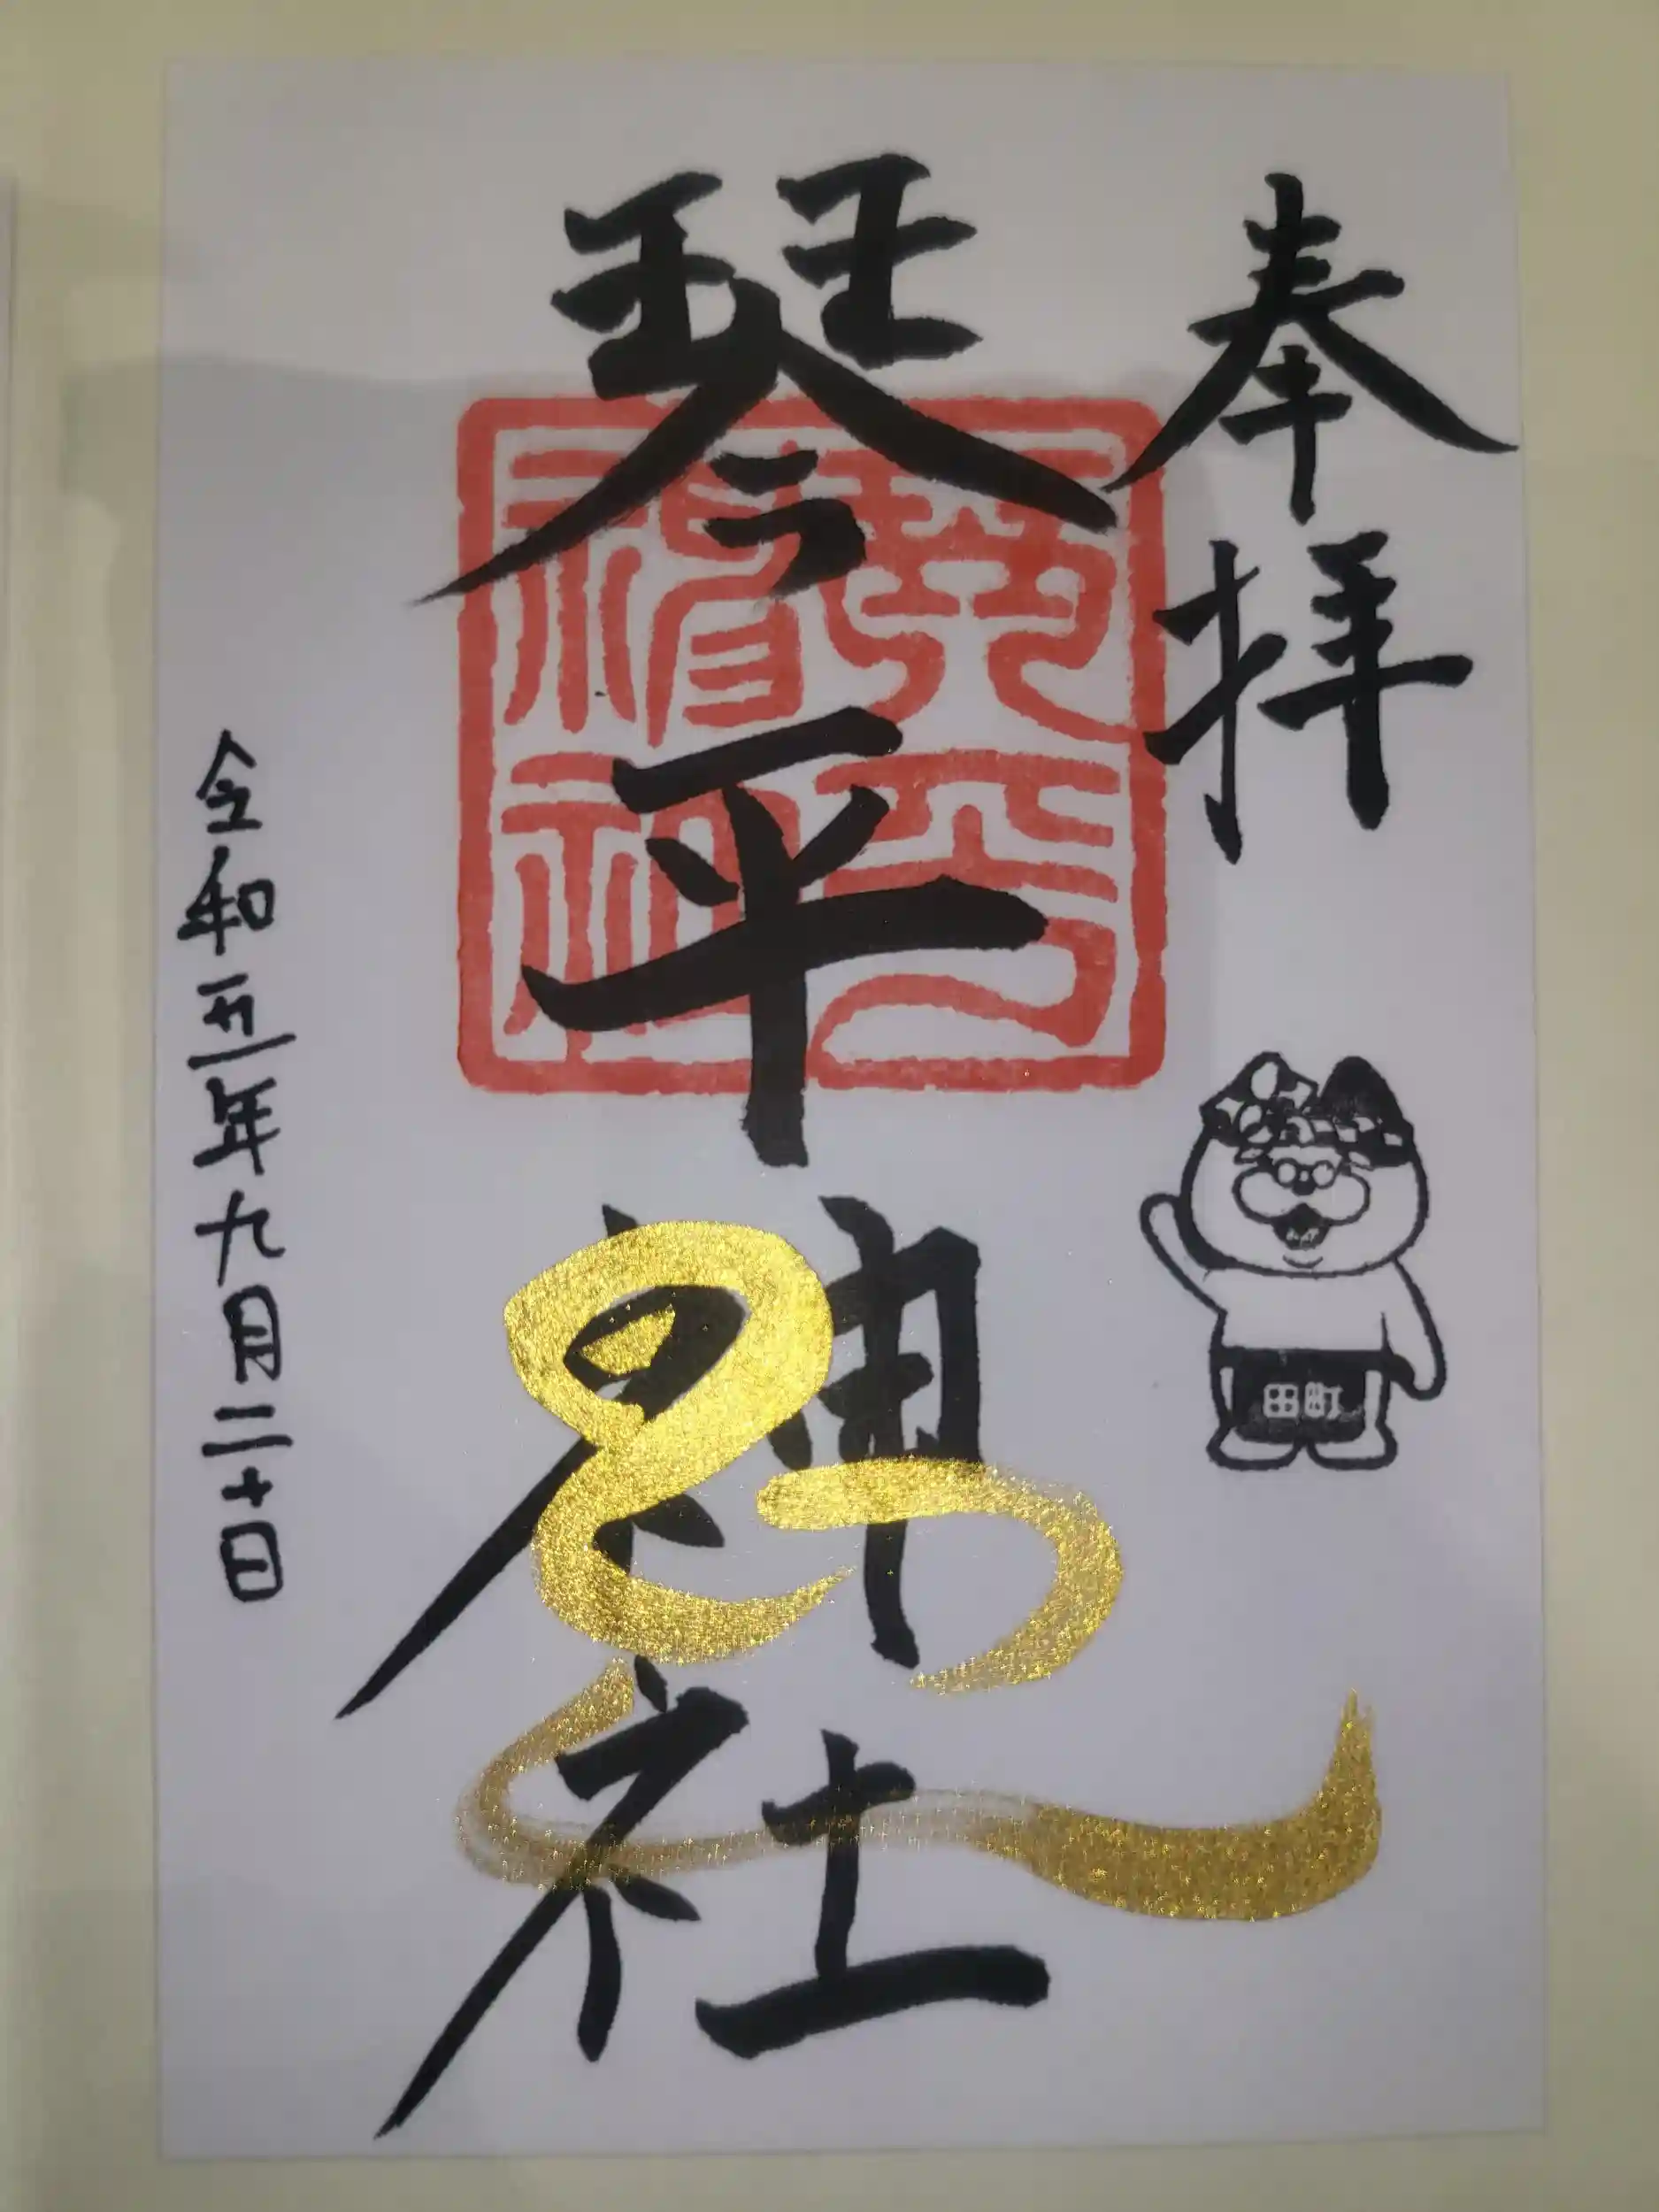 奉拝
琴平神社
琴平神社
田町
令和五年九月二十日